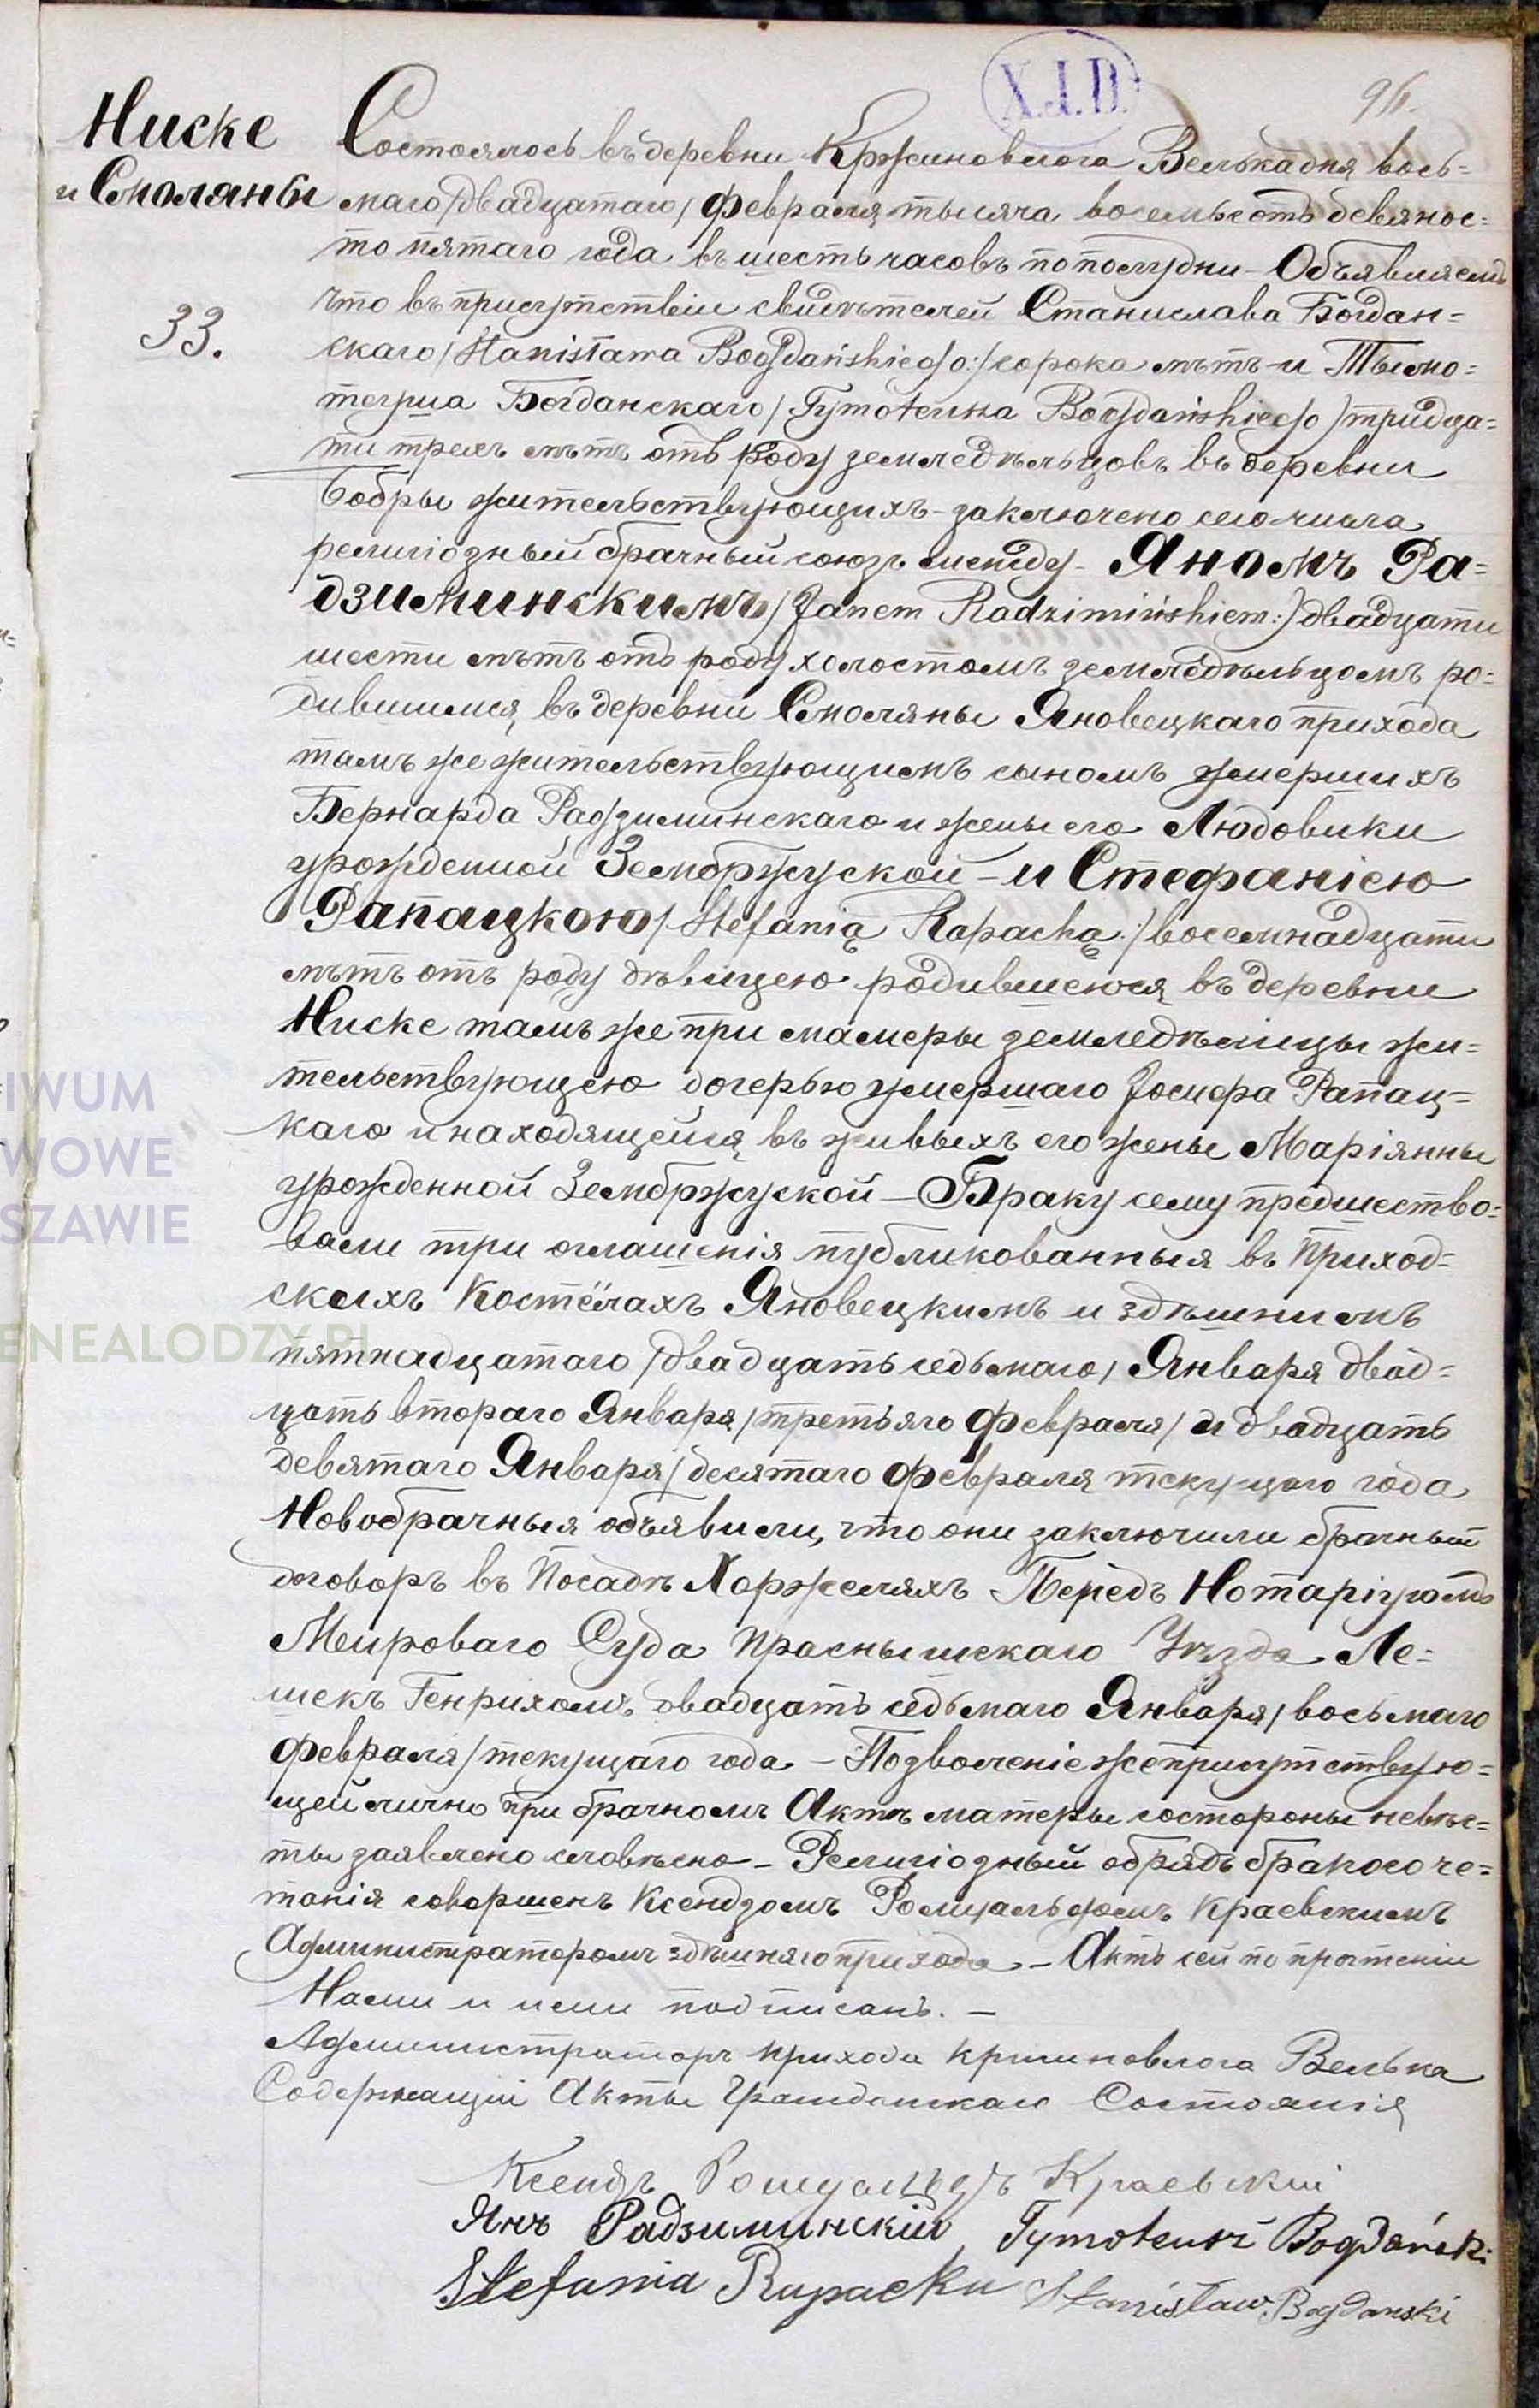 X.J.D.
96.
Ниске
и Смоляны
33.
Состоялось въ деревни Кржиновлога Велька дня вось=
маго /двадцатаго/ Февраля тысяча восемьсотъ девянос=
то пятаго года въ шесть часовъ по полудни – Объявляемъ
что въ присутствіи свидѣтелей Станислава Богдан=
скаго /Stanisława Bogdańskiego:/ сорока лѣтъ – и Тымо=
теуша Богданскаго /Tymoteusza Bogdańskiego/ тридца=
ти трехъ лѣтъ отъ роду земледѣльцовъ въ деревни
Бобры жительствующихъ – заключено сего числа
религіозный брачный союзъ между – Яномъ Ра=
дзиминскимъ /Janem Radzimińskiem:/ двадцати
шести лѣтъ отъ роду холостомъ земледѣльцомъ ро=
дившимся въ деревни Смоляны Яновецкаго прихода
тамъ же жительствующимъ сыномъ умершихъ
Бернарда Радзиминскаго и жены его Людовики
урожденной Зембржуской – и Стефаніею
Рапацкою /Stefanią Rapacką:/ восемнадцати
лѣтъ отъ роду дѣвицею родившеюся въ деревни
Ниске тамъ же при матеры земледѣлицы жи=
тельствующею дочерью умершаго Іосифа Рапац=
каго и находящейся въ живыхъ его жены Маріянны
урожденной Зембржуской – Браку сему предшество=
вали три оглашенія публикованныя въ Приход=
скихъ Костёлахъ Яновецкимъ и здѣшнимъ
пятнадцатаго /двадцать седьмаго/ Января двад=
цать втораго Января /третьяго Февраля/ и двадцать
девятаго Января /десятаго Февраля текущаго года
Новобрачныя объявили, что они заключили брачный
договоръ въ Посадѣ Хоржеляхъ Передъ Нотаріусомъ
Мироваго Суда Праснышскаго Уѣзда Ле=
шекъ Генрихомъ двадцать седьмаго Января /восьмаго
Февраля/ текущаго года – Подволеніе же присутствую=
щей лично при брачномъ Актѣ матеры состороны невѣс=
ты заявлено словѣсно – Религіозный обрядъ бракосоче=
танія совершенъ Ксендзомъ Ромуальдомъ Краевскимъ
Администраторомъ здѣшняго прихода – Актъ сей по прочтеніи
Нами и ими подписанъ. –
Администраторъ прихода Кршиновлога Велька
Содержащій Акты Гражданскаго Состоянія
Ксендзъ Ромуальдъ Краевскій
Янъ Радзиминскій Tymoteusz Bogdański
Stefania Rapacka Stanisław Bogdanski
IWUM
WOWE
SZAWIE
ENEALODZY.PL